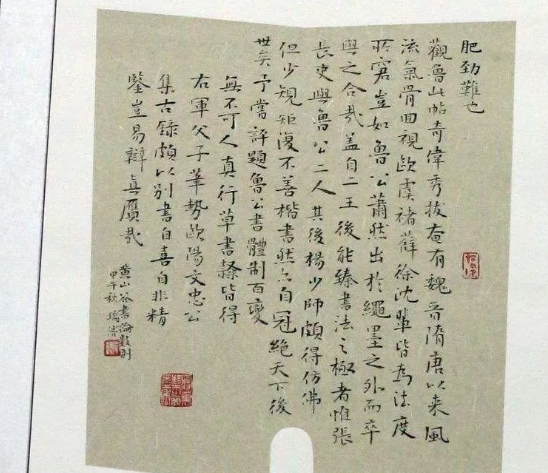 肥勁難也
觀魯此帖奇偉秀拔奄有魏晉隋唐以來風
流氣骨回視歐虞褚薛徐沈輩皆為法度
所窘豈如魯公蕭然出於繩墨之外而卒
與之合哉蓋自二王後能臻書法之極者惟張
長史與魯公二人其後楊少師頗得仿佛
但少規矩復不善楷書然亦自冠絕天下後
世矣予嘗評題魯公書體制百變
無不可人真行草書隸皆得
右軍父子筆勢歐陽文忠公
集古錄頗以別書自喜自非精
鑒豈易辯真贋哉
黃山谷書論數則
甲午秋